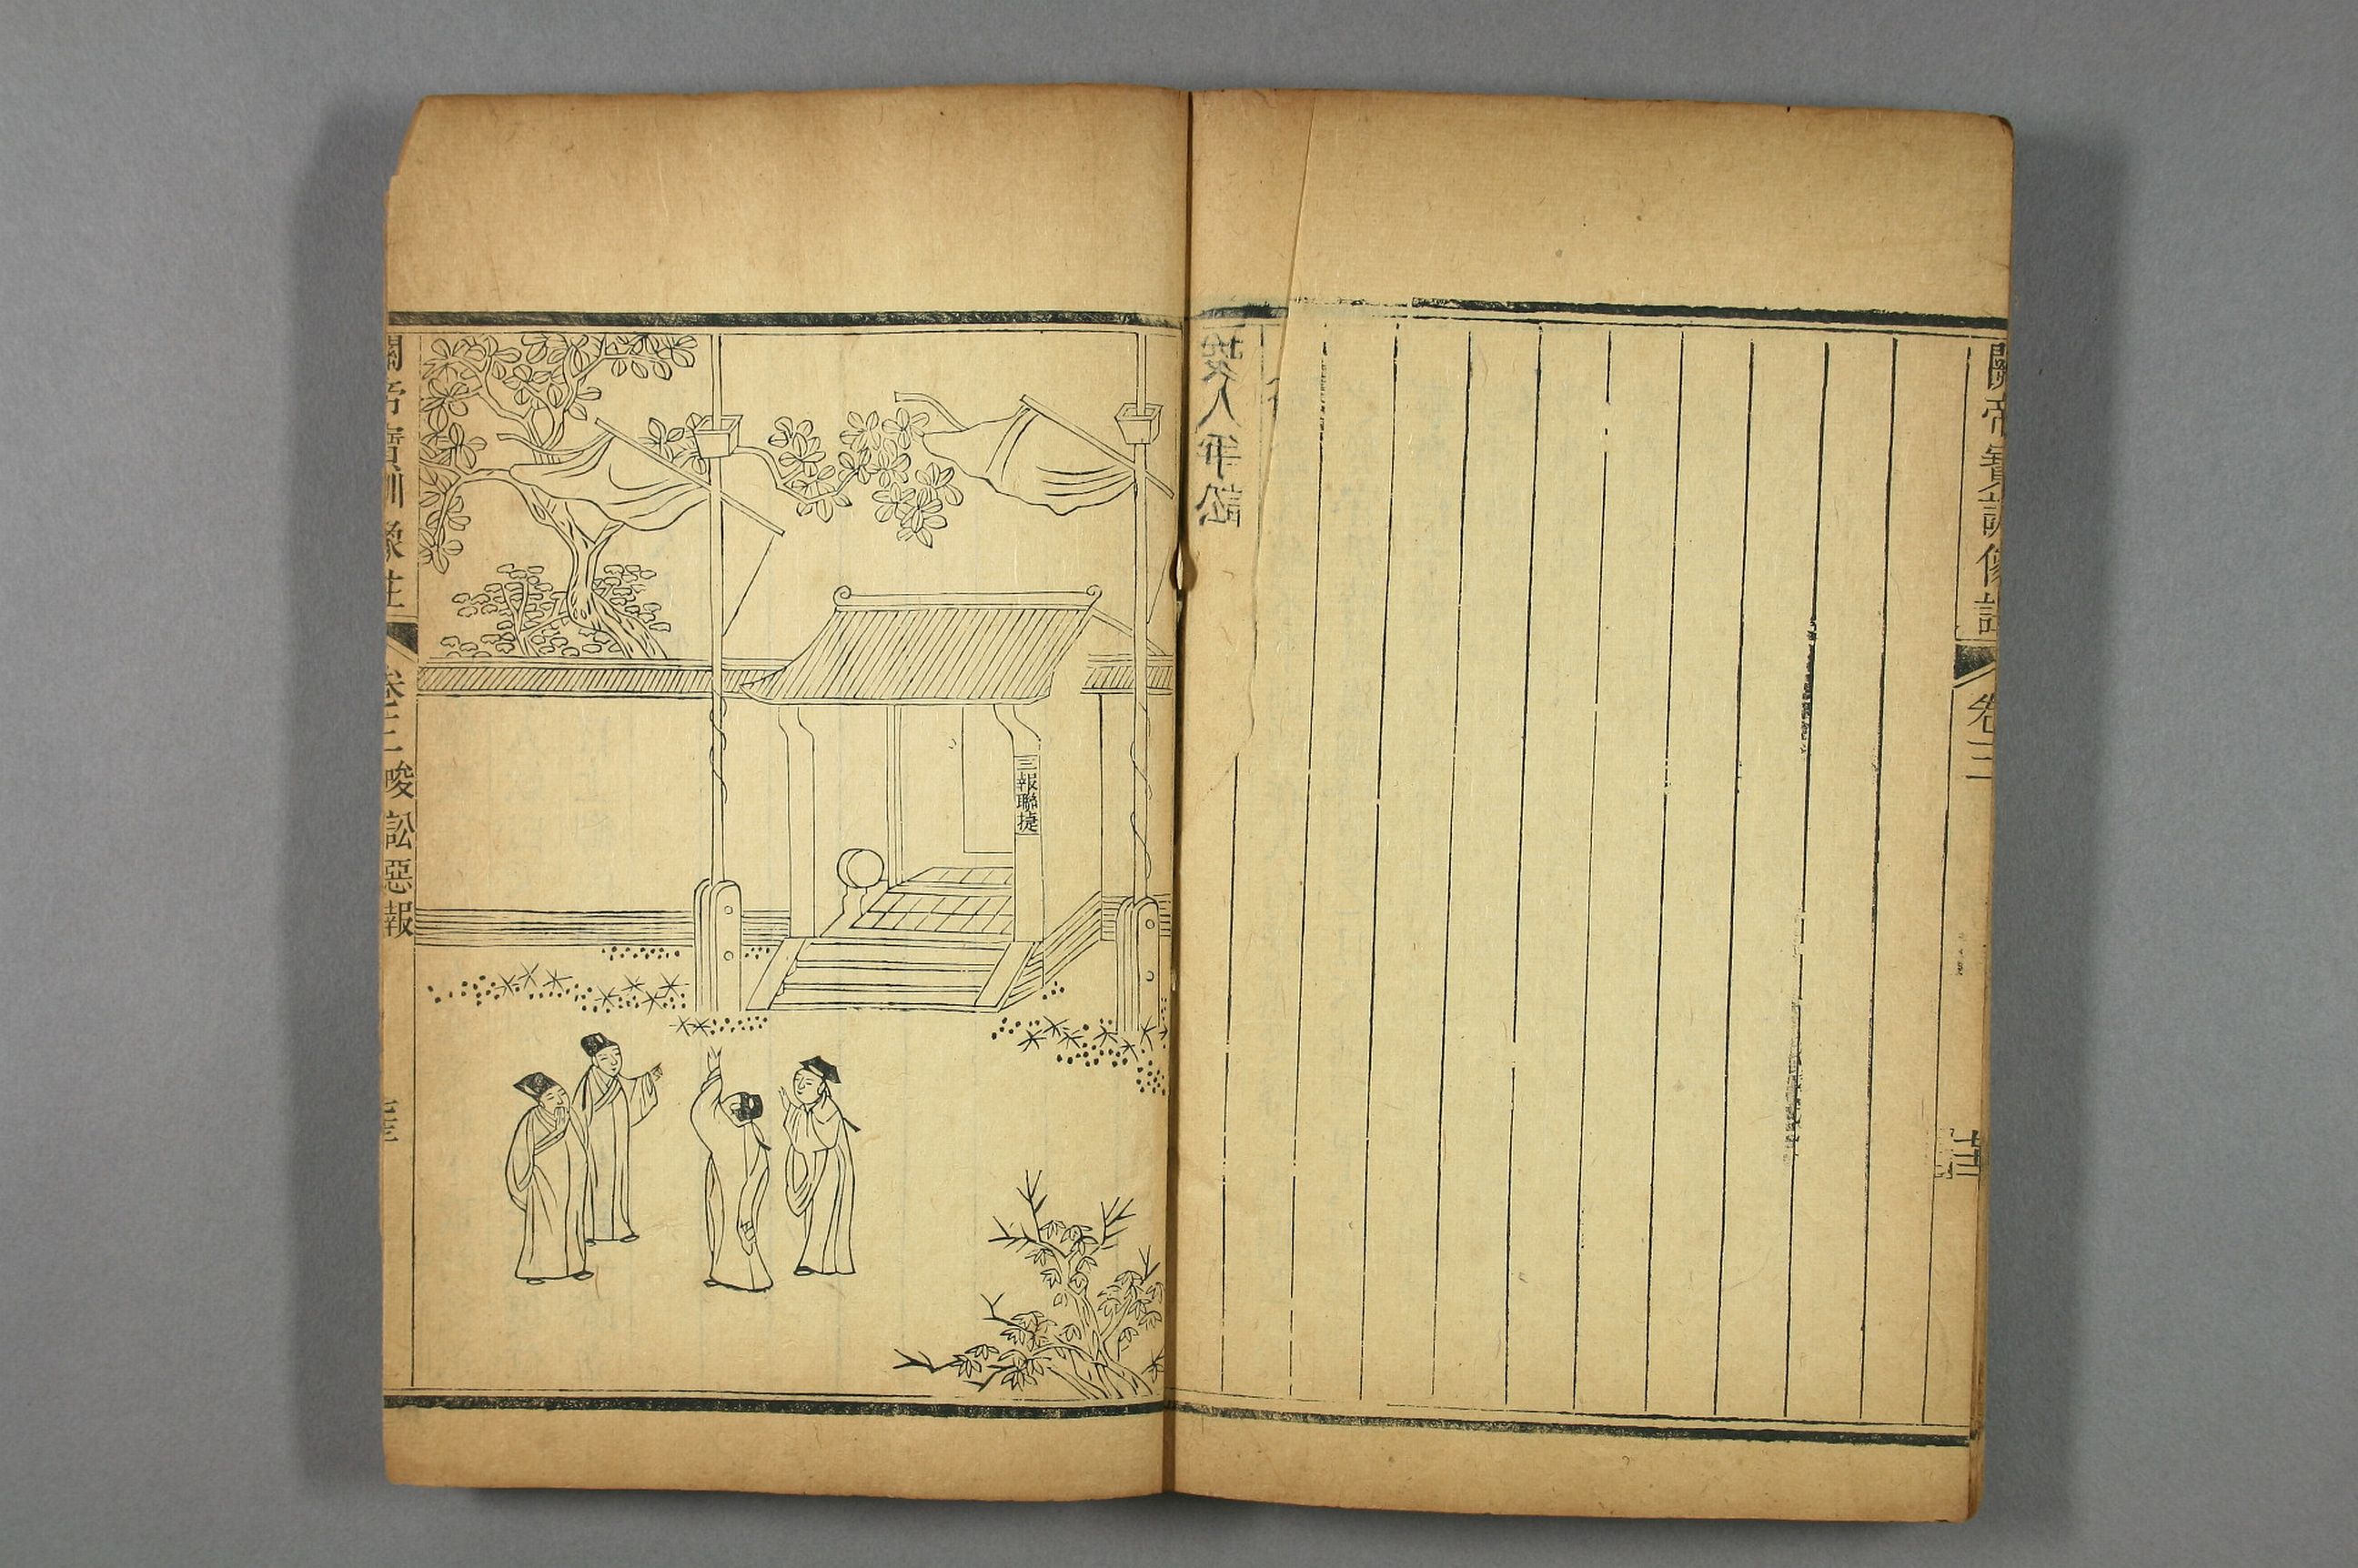 關帝寶訓像註
卷三
人爭訟
三報聯捷
關帝寶訓像註
卷三
唆訟惡報